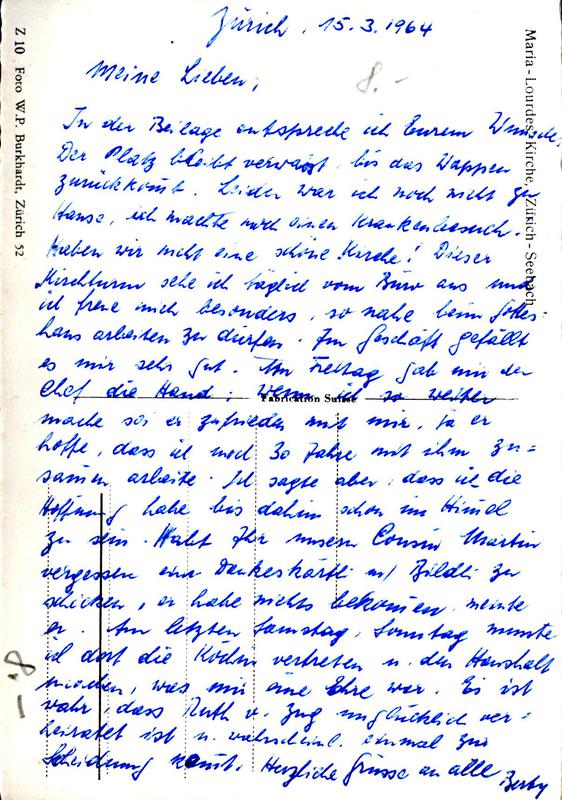 Zürich, 15.3.1964
8.-
Meine Lieben,
In der Beilage entspreche ich Eurem Wunsche.
Der Platz bleibt verwaist, bis das Wappen
zurückkomt. Leider war ich noch nicht zu
Hause, ich machte noch einen Krankenbesuch.
Haben wir nicht eine schöne Kirche! Dieser
Kirchturm sehe ich täglich vom Büro aus und
ich freue mich besonders, so nahe beim Gottes-
haus arbeiten zu dürfen. Im Geschäft gefällt
es mir sehr gut. Am Freitag gab mir der
Chef die Hand: wenn ich so weiter
mache sei er zufrieden mit mir, ja er
hoffe, dass ich noch 30 Jahre mit ihm zu=
samen arbeite. Ich sagte aber, dass ich die
Hoffnung habe bis dahin schon im Himel
zu sein. Habt Ihr unsern Cousin Martin
vergessen ein Dankeskärtli m/ Bildli zu
schicken, er habe nichts bekomen, meinte
er. Am letzten Samstag, Sonntag musste
ich dort die Köchin vertreten u. den Haushalt
machen, was mir eine Ehre war. Es ist
wahr, dass Ruth v. Zug unglücklich ver=
heiratet ist u. wahrscheinl. einmal zur
Scheidung komt. Herzliche Grüsse an alle
8.-
Maria-Lourdes-Kirche, Zürich-Seebach
Z 10 Foto W. P. Burkhardt, Zürich 52
Fabrication Suisse